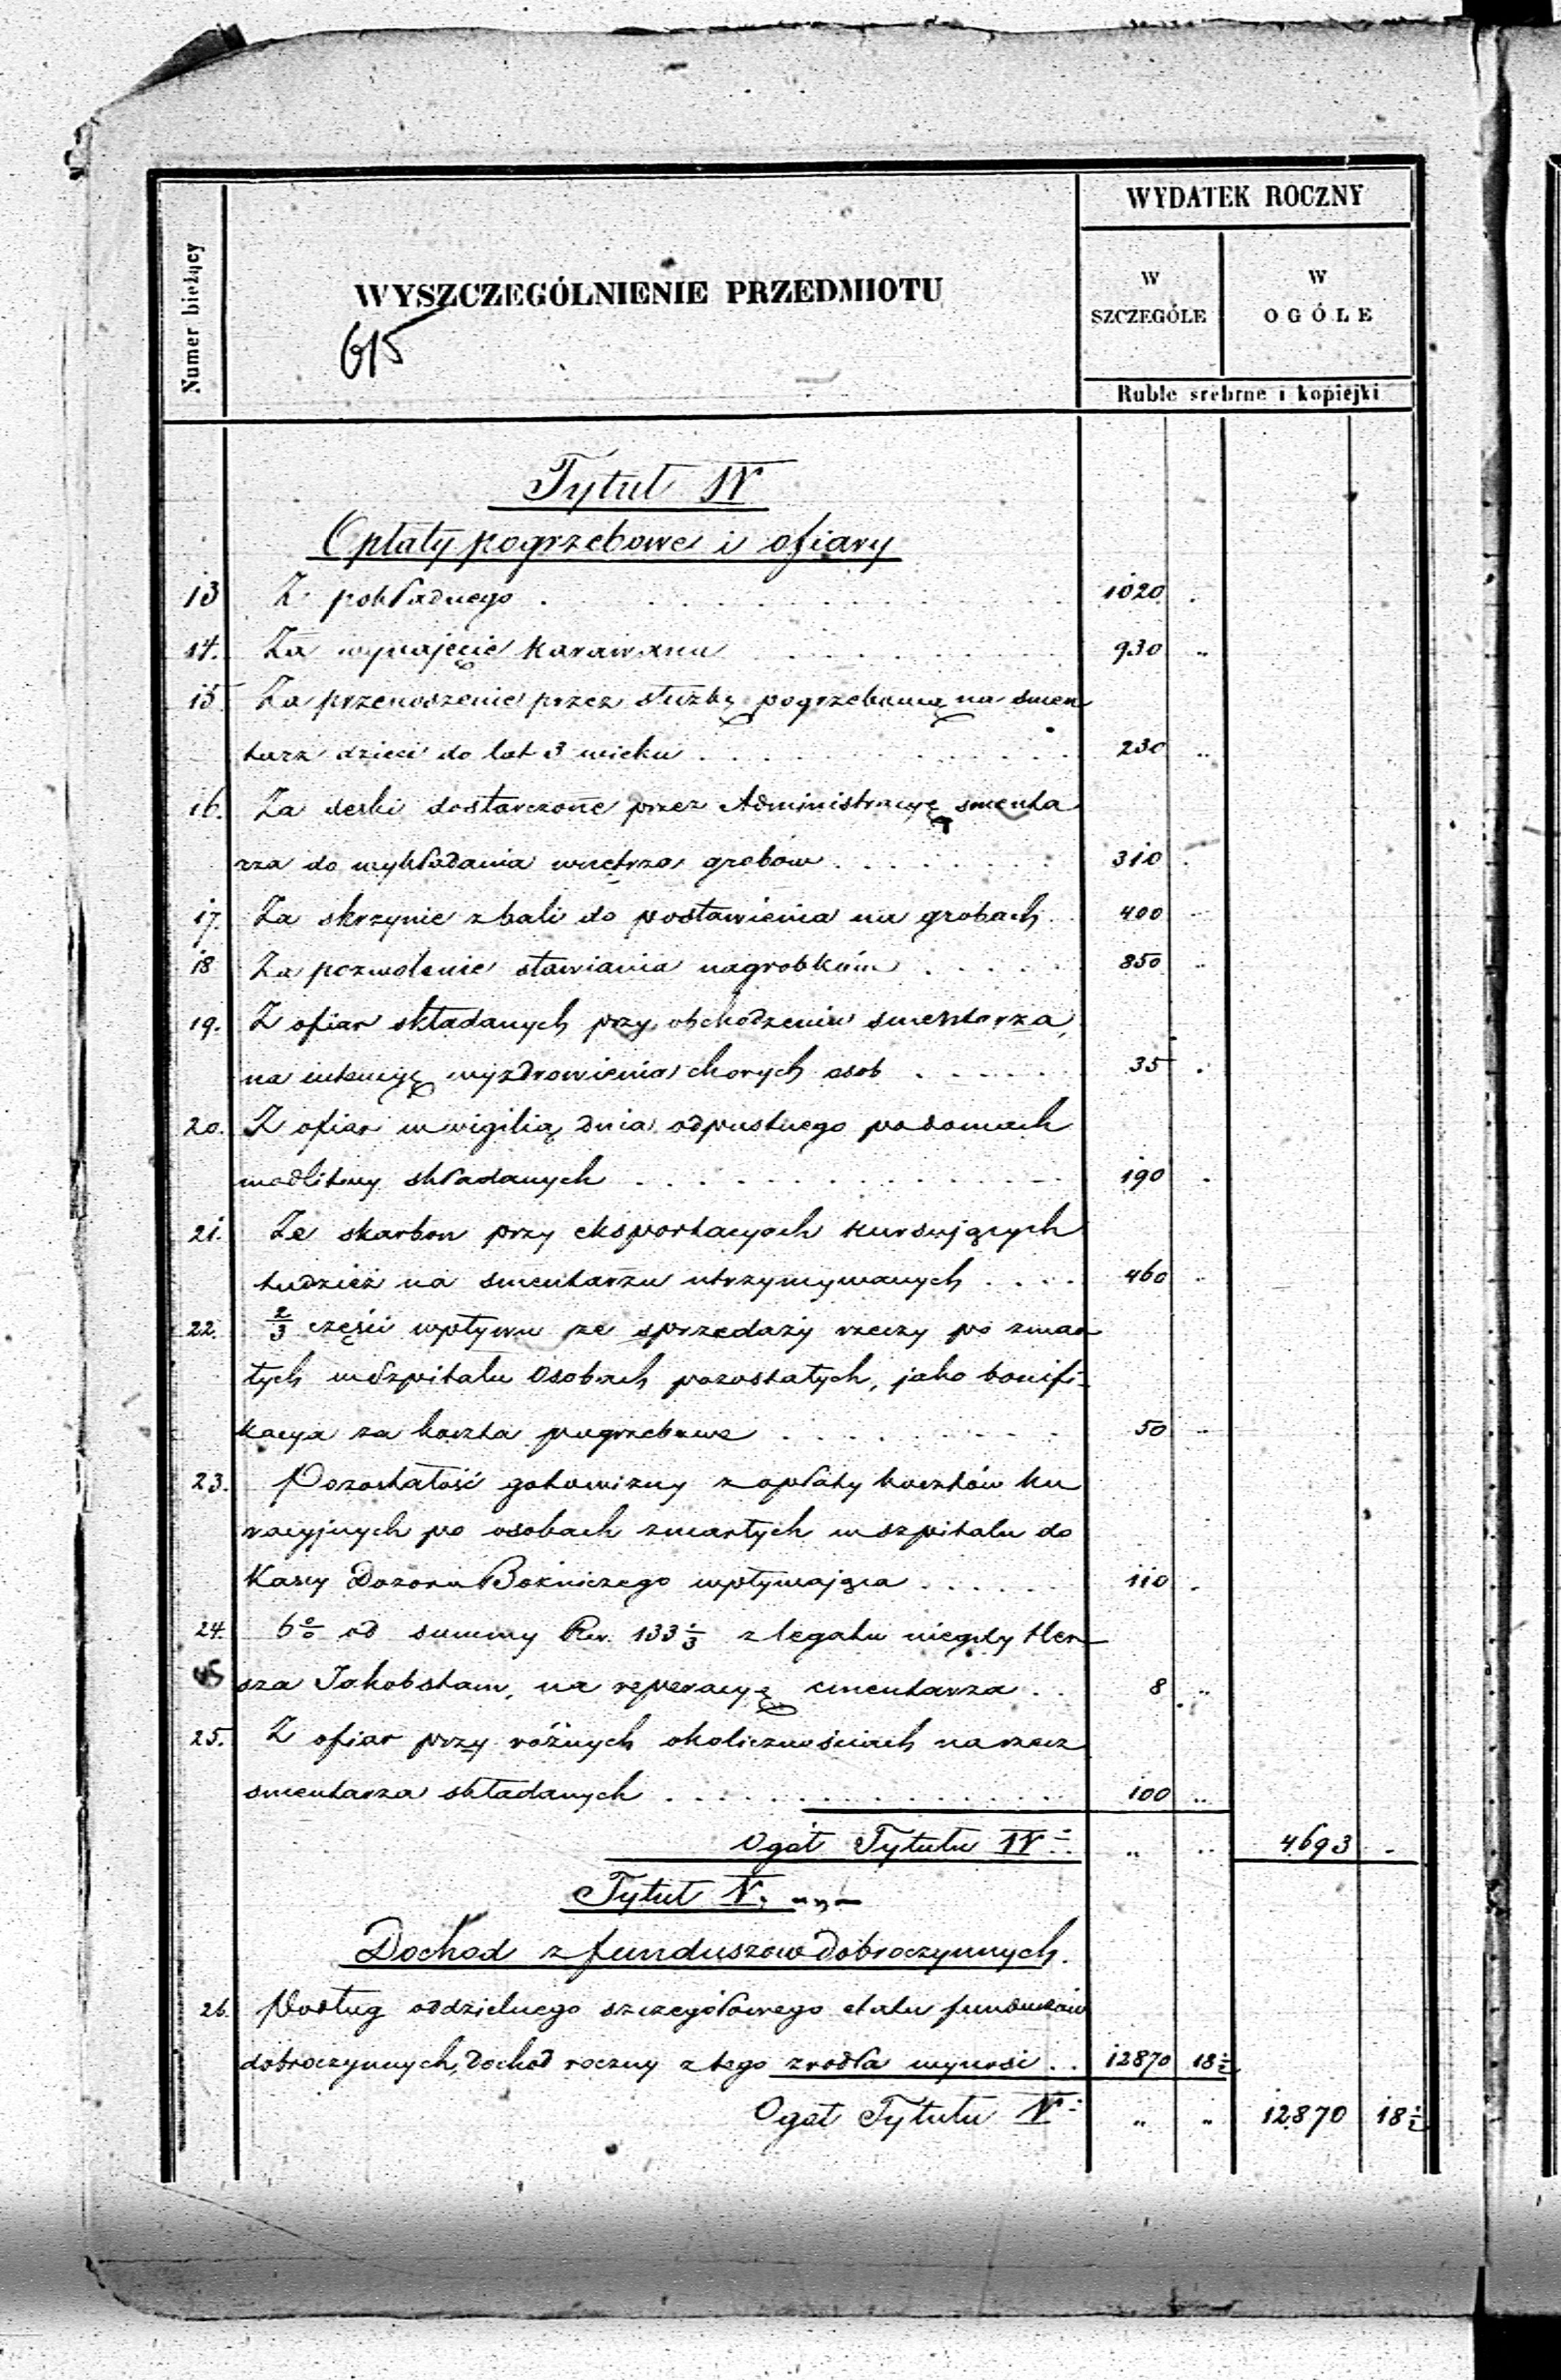 WYDATEK ROCZNY
Numer bieżący
WYSZCZEGÓLNIENIE PRZEDMIOTU
W SZCZEGÓLE
W OGÓLE
615
Ruble srebrne i kopiejki
Tytuł IV
Opłaty pogrzebowe i ofiary
13 Z pokładnego . . . 1020 .
14. Za wynajęcie karawanu . . . 930 "
15 Za przenoszenie przez służbę pogrzebową na smen
tarz dzieci do lat 3 wieku . . . 230 "
16. Za deski dostarczone przez Administracyę smenta
rza do wykładania wnętrza grobów . . . 310 .
17. Za skrzynie z bali do postawienia na grobach . 400 "
18 Za pozwolenie stawiania nagrobków . . . 850 "
19. Z ofiar składanych przy obchodzeniu smentarza,
na intencyę wyzdrowienia chorych osob . . . 35 .
20. Z ofiar w wigilią dnia odpustnego po domach
modlitwy składanych . . . 190 .
21. Ze skarbon przy eksportacyach kursujących
tudzież na smentarzu utrzymywanych . . . 460 "
22. 2/3 części wpływu ze sprzedaży rzeczy po zmar
łych w Szpitalu Osobach pozostałych, jako bonifi-
kacya za koszta pogrzebowe . . . 50 "
23. Pozostałość gotowizny z opłaty kosztów ku
racyjnych po osobach zmarłych w szpitalu do
Kassy Dozoru Bożniczego wpływająca . . . 110 .
24. 6 % od summy Rsr. 133 1/3 z legatu niegdy Her
sza Jakobstam, na reperacyę cmentarza . . 8 "
25. Z ofiar przy różnych okolicznościach na rzecz
smentarza składanych . . . 100 "
Ogół Tytułu IV " " 4693 .
Tytuł V.
Dochod z funduszow dobroczynnych.
26. Podług oddzielnego szczegółowego etatu funduszów
dobroczynnych, dochód roczny z tego zrodła wynosi . . 12870 18 1/2
Ogół Tytułu V " " 12870 18 1/2